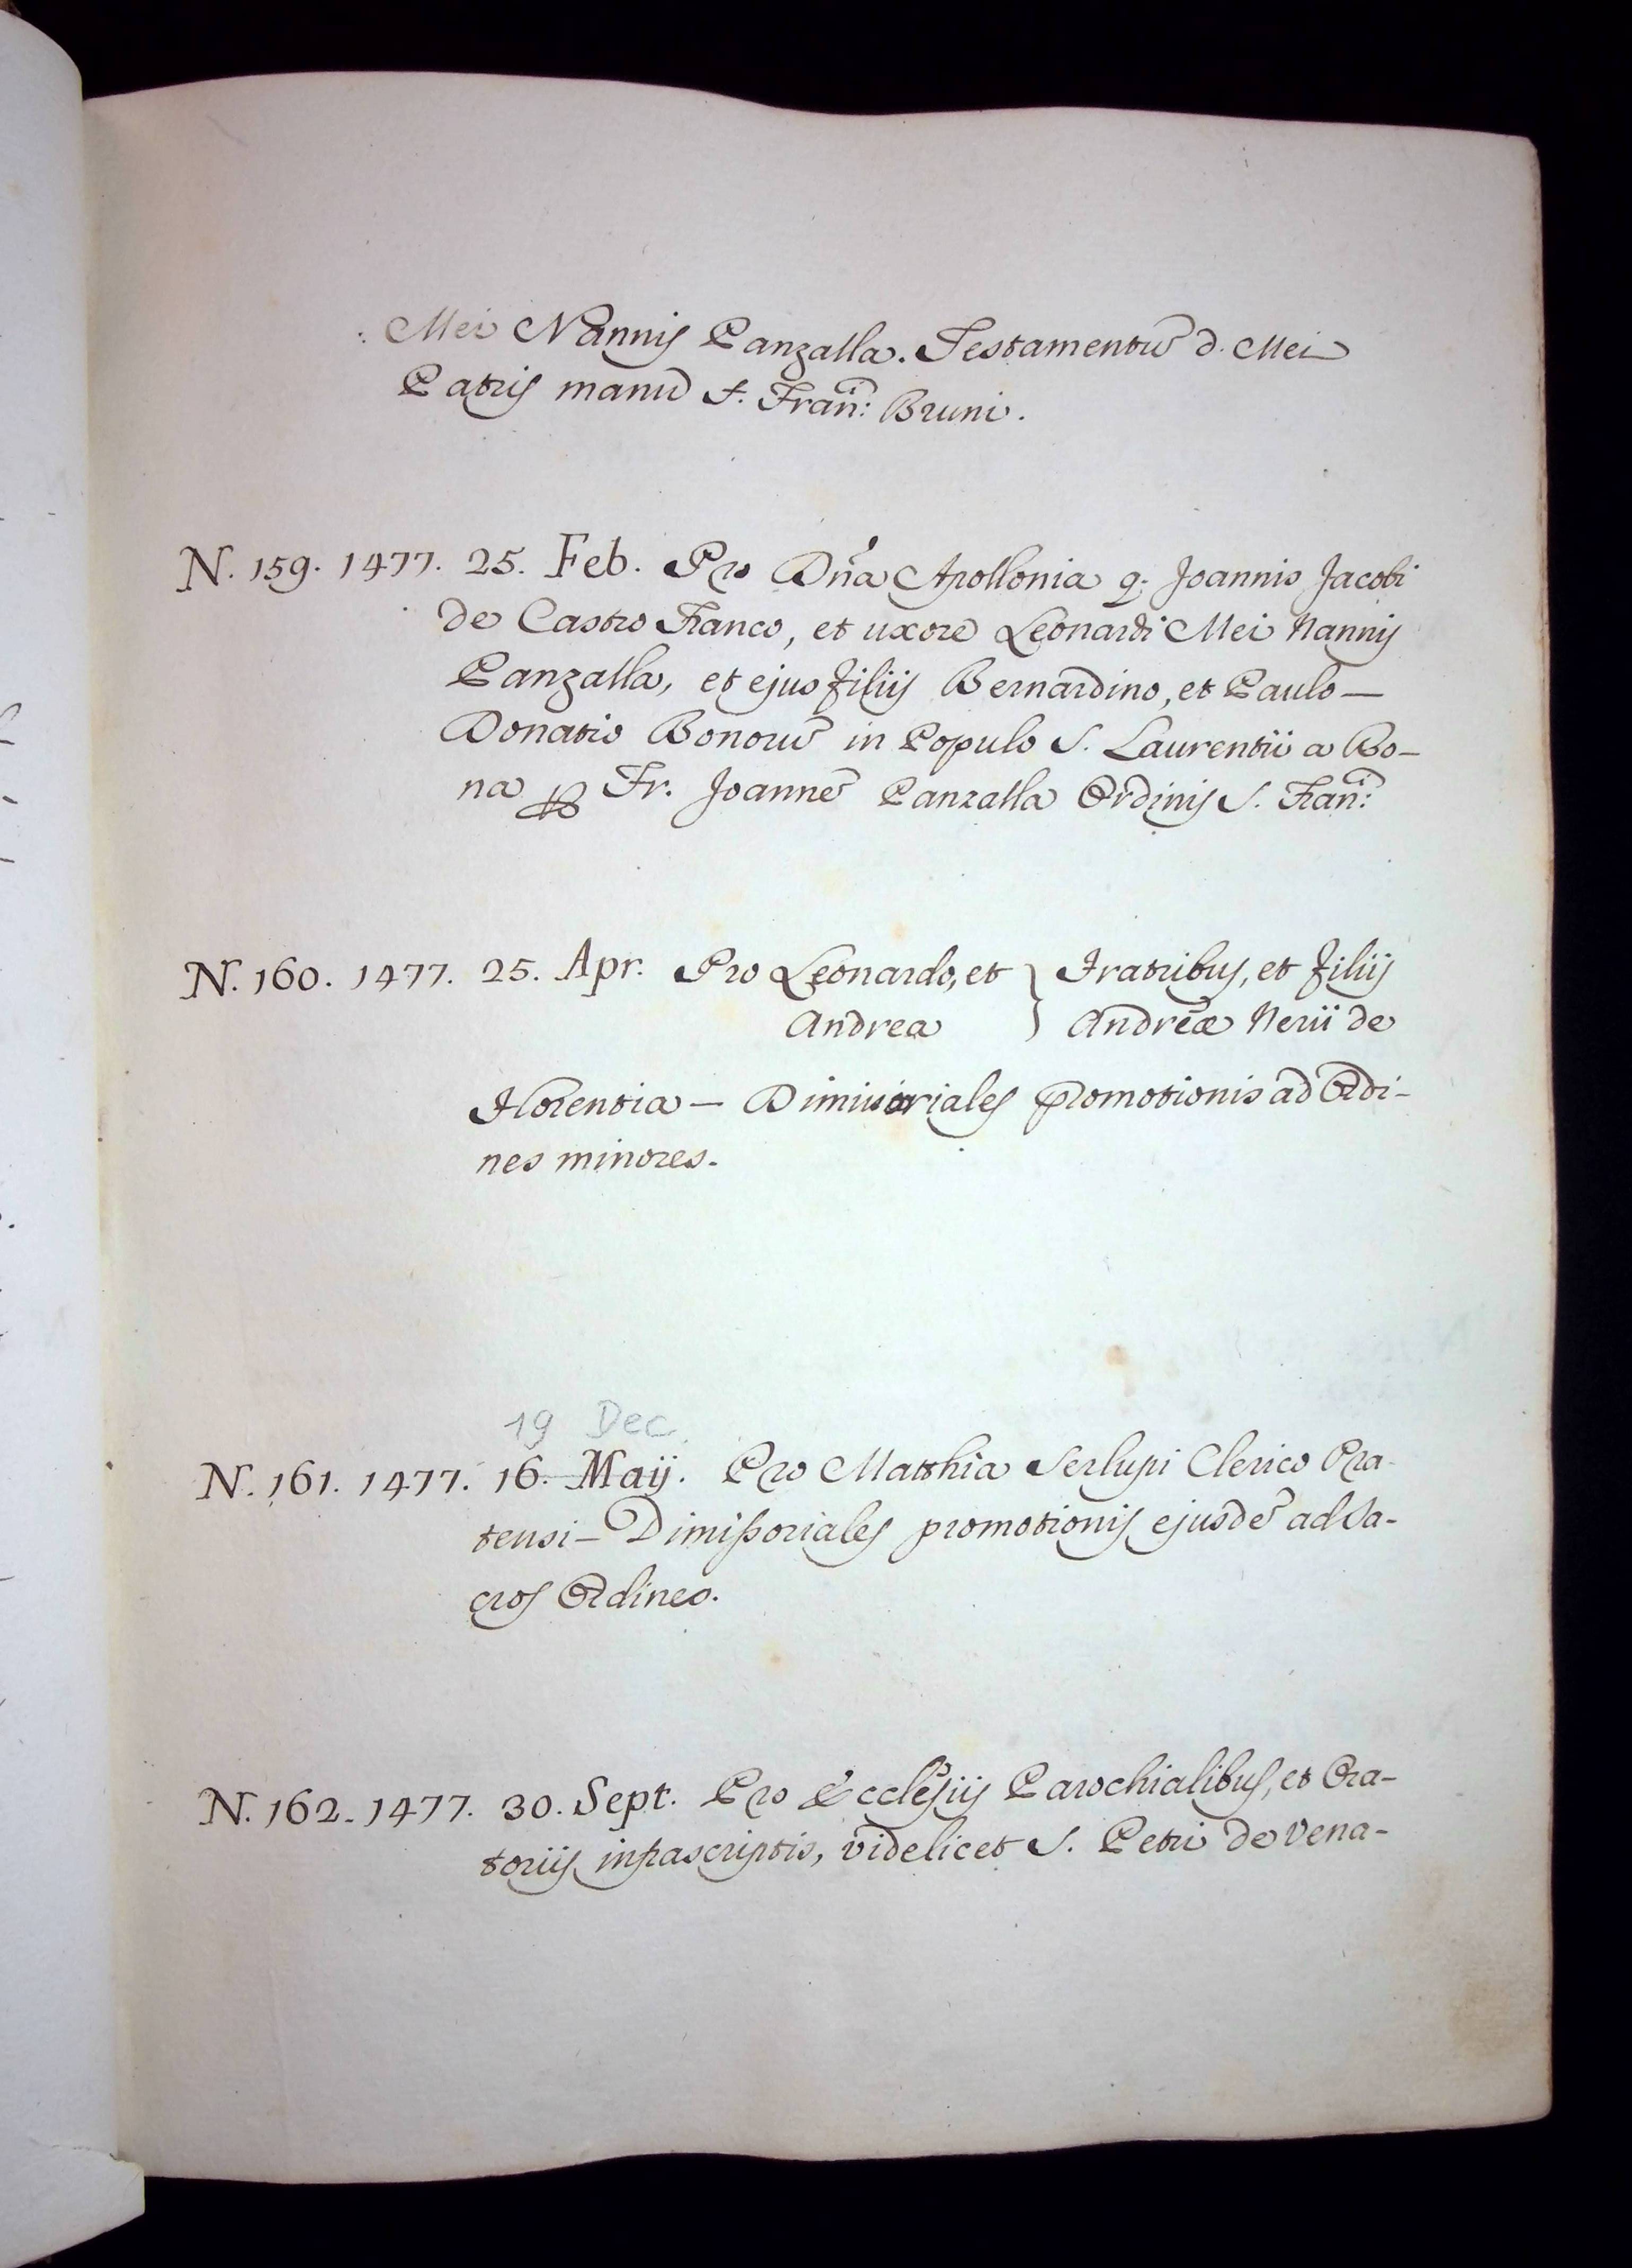 Mei Nannis Panzalla. Testamentū d. Mei
Patris manu S. Frañ: Bruni.
N. 159. 1477. 25. Feb. Pro Dña Apollonia q. Joannis Jacobi
de Castro Franco, et uxore Leonardi Mei Nannis
Panzalla, et ejus filiis Bernardino, et Paulo —
Donatio Bonorū in Populo S. Laurentii a Bo-
na per Fr. Joannē Panzalla Ordinis S. Frañ:
N. 160. 1477. 25. Apr. Pro Leonardo, et } Fratribus, et filiis
Andrea } Andreæ Nerii de
Florentia — Dimissoriales promotionis ad Ordi-
nes minores.
19 Dec.
N. 161. 1477. 16. Maij. Pro Matthia Serlupi Clerico Pra-
tensi — Dimissoriales promotionis ejusdē ad Sa-
cros Ordines.
N. 162. 1477. 30. Sept. Pro Ecclesiis Parochialibus, et Ora-
toriis infrascriptis, videlicet S. Petri de Vena-